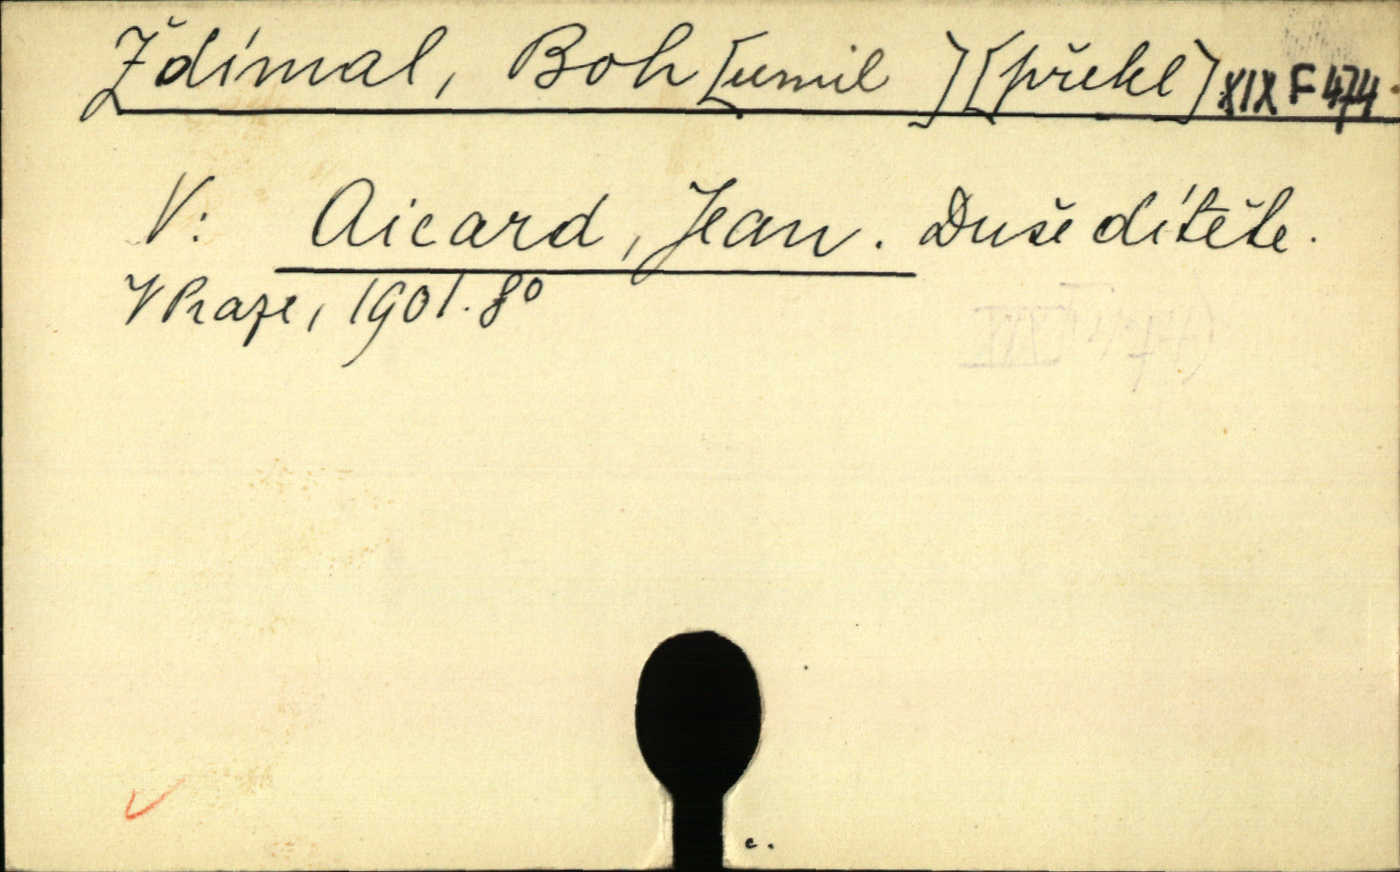 Ždímal, Boh[umil ] [překl] XIX F 474.
V: Aicard, Jean. Duše dítěte.
V Praze, 1901. 8°
c.